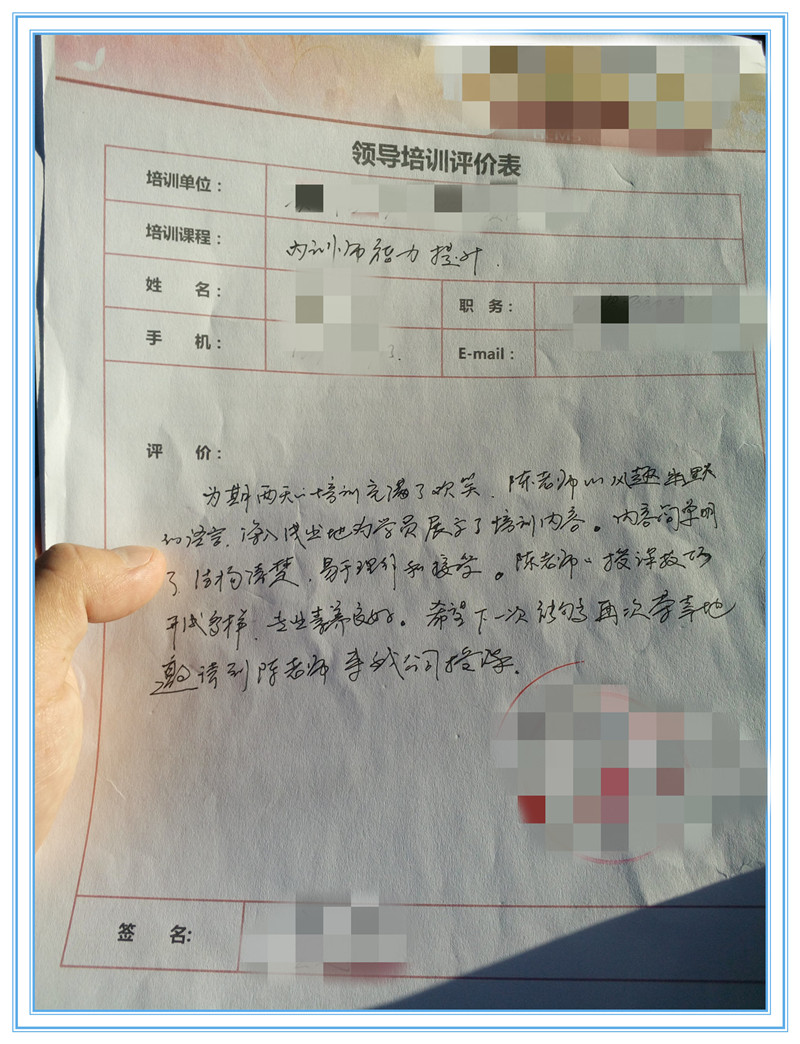 领导培训评价表
培训单位：
培训课程： 内训师能力提升.
姓 名： 职 务：
手 机： 3. E-mail：
评 价：
为期两天的培训充满了欢笑，陈老师以风趣幽默
的语言，深入浅出地为学员展示了培训内容。内容简单明
了，结构清楚，易于理解和接受。陈老师的授课技巧
形式多样，专业素养良好。希望下一次能够再次荣幸地
邀请到陈老师来我公司授课.
签 名: